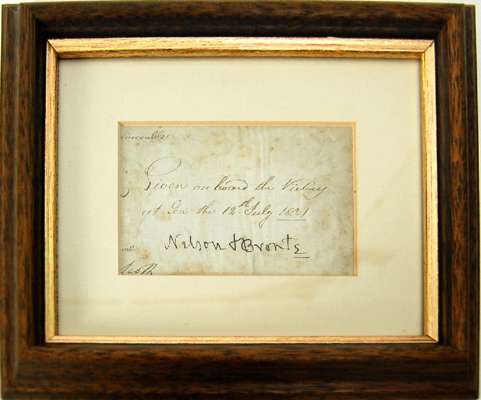 Given on board the Victory
at Sea the 12th July 1804
Nelson & Bronte